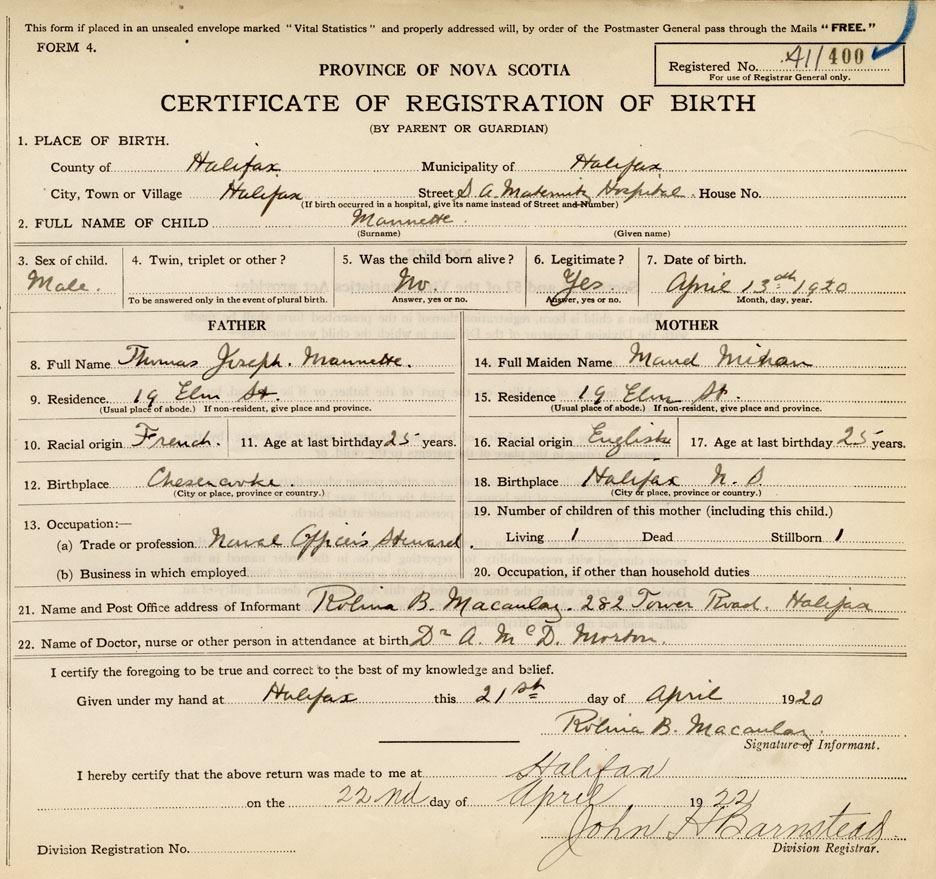 This form if placed in an unsealed envelope marked "Vital Statistics" and properly addressed will, by order of the Postmaster General pass through the Mails "FREE."
FORM 4.
Registered No. 41/400
For use of Registrar General only.
PROVINCE OF NOVA SCOTIA
CERTIFICATE OF REGISTRATION OF BIRTH
(BY PARENT OR GUARDIAN)
1. PLACE OF BIRTH.
County of Halifax Municipality of Halifax
City, Town or Village Halifax Street S. A. Maternity Hospital. House No.
(If birth occurred in a hospital, give its name instead of Street and Number)
2. FULL NAME OF CHILD Mannette.
(Surname) (Given name)
3. Sex of child. 4. Twin, triplet or other? 5. Was the child born alive? 6. Legitimate? 7. Date of birth.
Male. No. Yes April 13th 1920
To be answered only in the event of plural birth. Answer, yes or no. Answer, yes or no. Month, day, year.
FATHER MOTHER
8. Full Name Thomas Joseph. Mannette. 14. Full Maiden Name Maud
9. Residence. 19 Elm St. 15. Residence 19 Elm St.
(Usual place of abode.) If non-resident, give place and province. (Usual place of abode.) If non-resident, give place and province.
10. Racial origin French. 11. Age at last birthday 25 years. 16. Racial origin English 17. Age at last birthday 25 years.
12. Birthplace 18. Birthplace Halifax N. S.
(City or place, province or country.) (City or place, province or country.)
13. Occupation:— 19. Number of children of this mother (including this child.)
(a) Trade or profession Naval Officers Steward. Living 1 Dead Stillborn 1
(b) Business in which employed 20. Occupation, if other than household duties
21. Name and Post Office address of Informant Rolina B. Macaulay. 282 Tower Road. Halifax
22. Name of Doctor, nurse or other person in attendance at birth Dr A. McD. Morton.
I certify the foregoing to be true and correct to the best of my knowledge and belief.
Given under my hand at Halifax this 21st day of April 1920
Rolina B. Macaulay.
Signature of Informant.
I hereby certify that the above return was made to me at Halifax
on the 22nd day of April 1922
John H Barnstead
Division Registration No. Division Registrar.